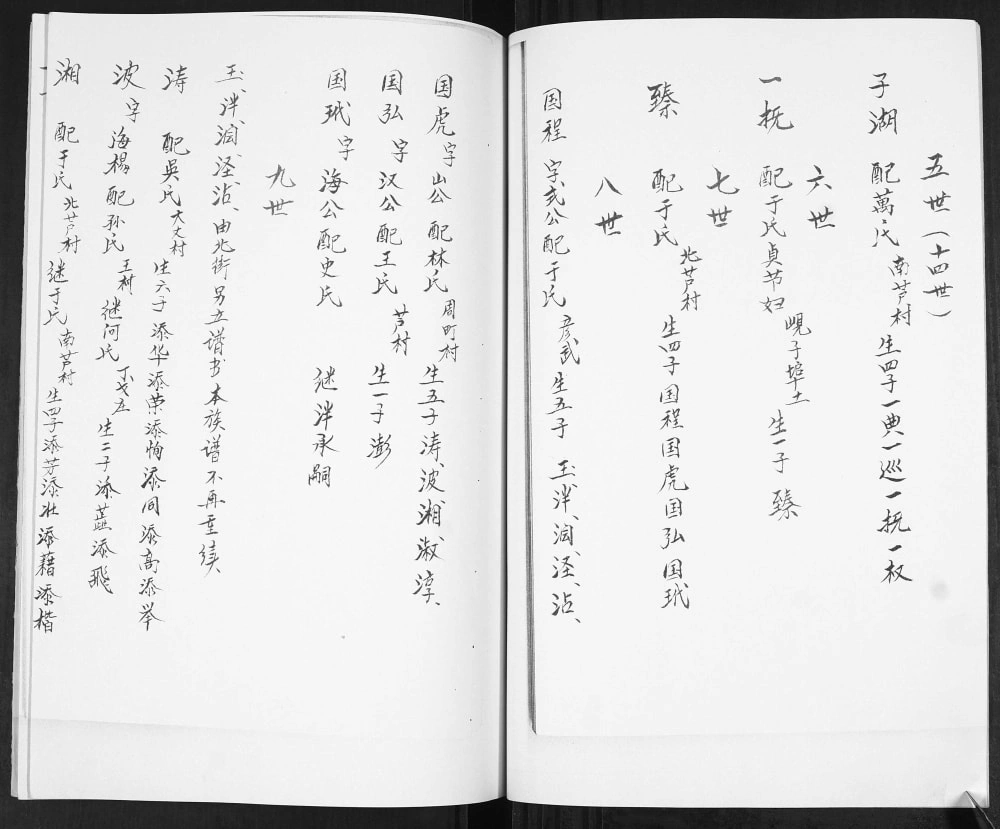 五世(十四世)
子湖 配萬氏 南芦村 生四子一典一巡一抚一权
六世
一抚 配于氏贞节妇 岘子埠 生一子 臻
七世
臻 配于氏 北芦村 生四子国程国虎国弘国珷
八世
国程 字式公配于氏 彦武 生五子 玉、泮、润、泾、沾、
国虎字山公 配林氏 周町村 生五子涛、波、湘、淑、淳、
国弘 字 汉公配王氏 芦村 生一子 澎
国珷字 海公配史氏 继泮承嗣
九世
玉、泮、润、泾、沾、由北街另立谱书本族谱不再重续
涛 配吳氏 大丈村 生六子添华添荣添恂添同添高添举
波 字 海楊 配孙氏 王村 继何氏 生二子添蓝添飛
湘 配于氏 北芦村 继于氏 南芦村 生四子添芳添壮添藉添楷